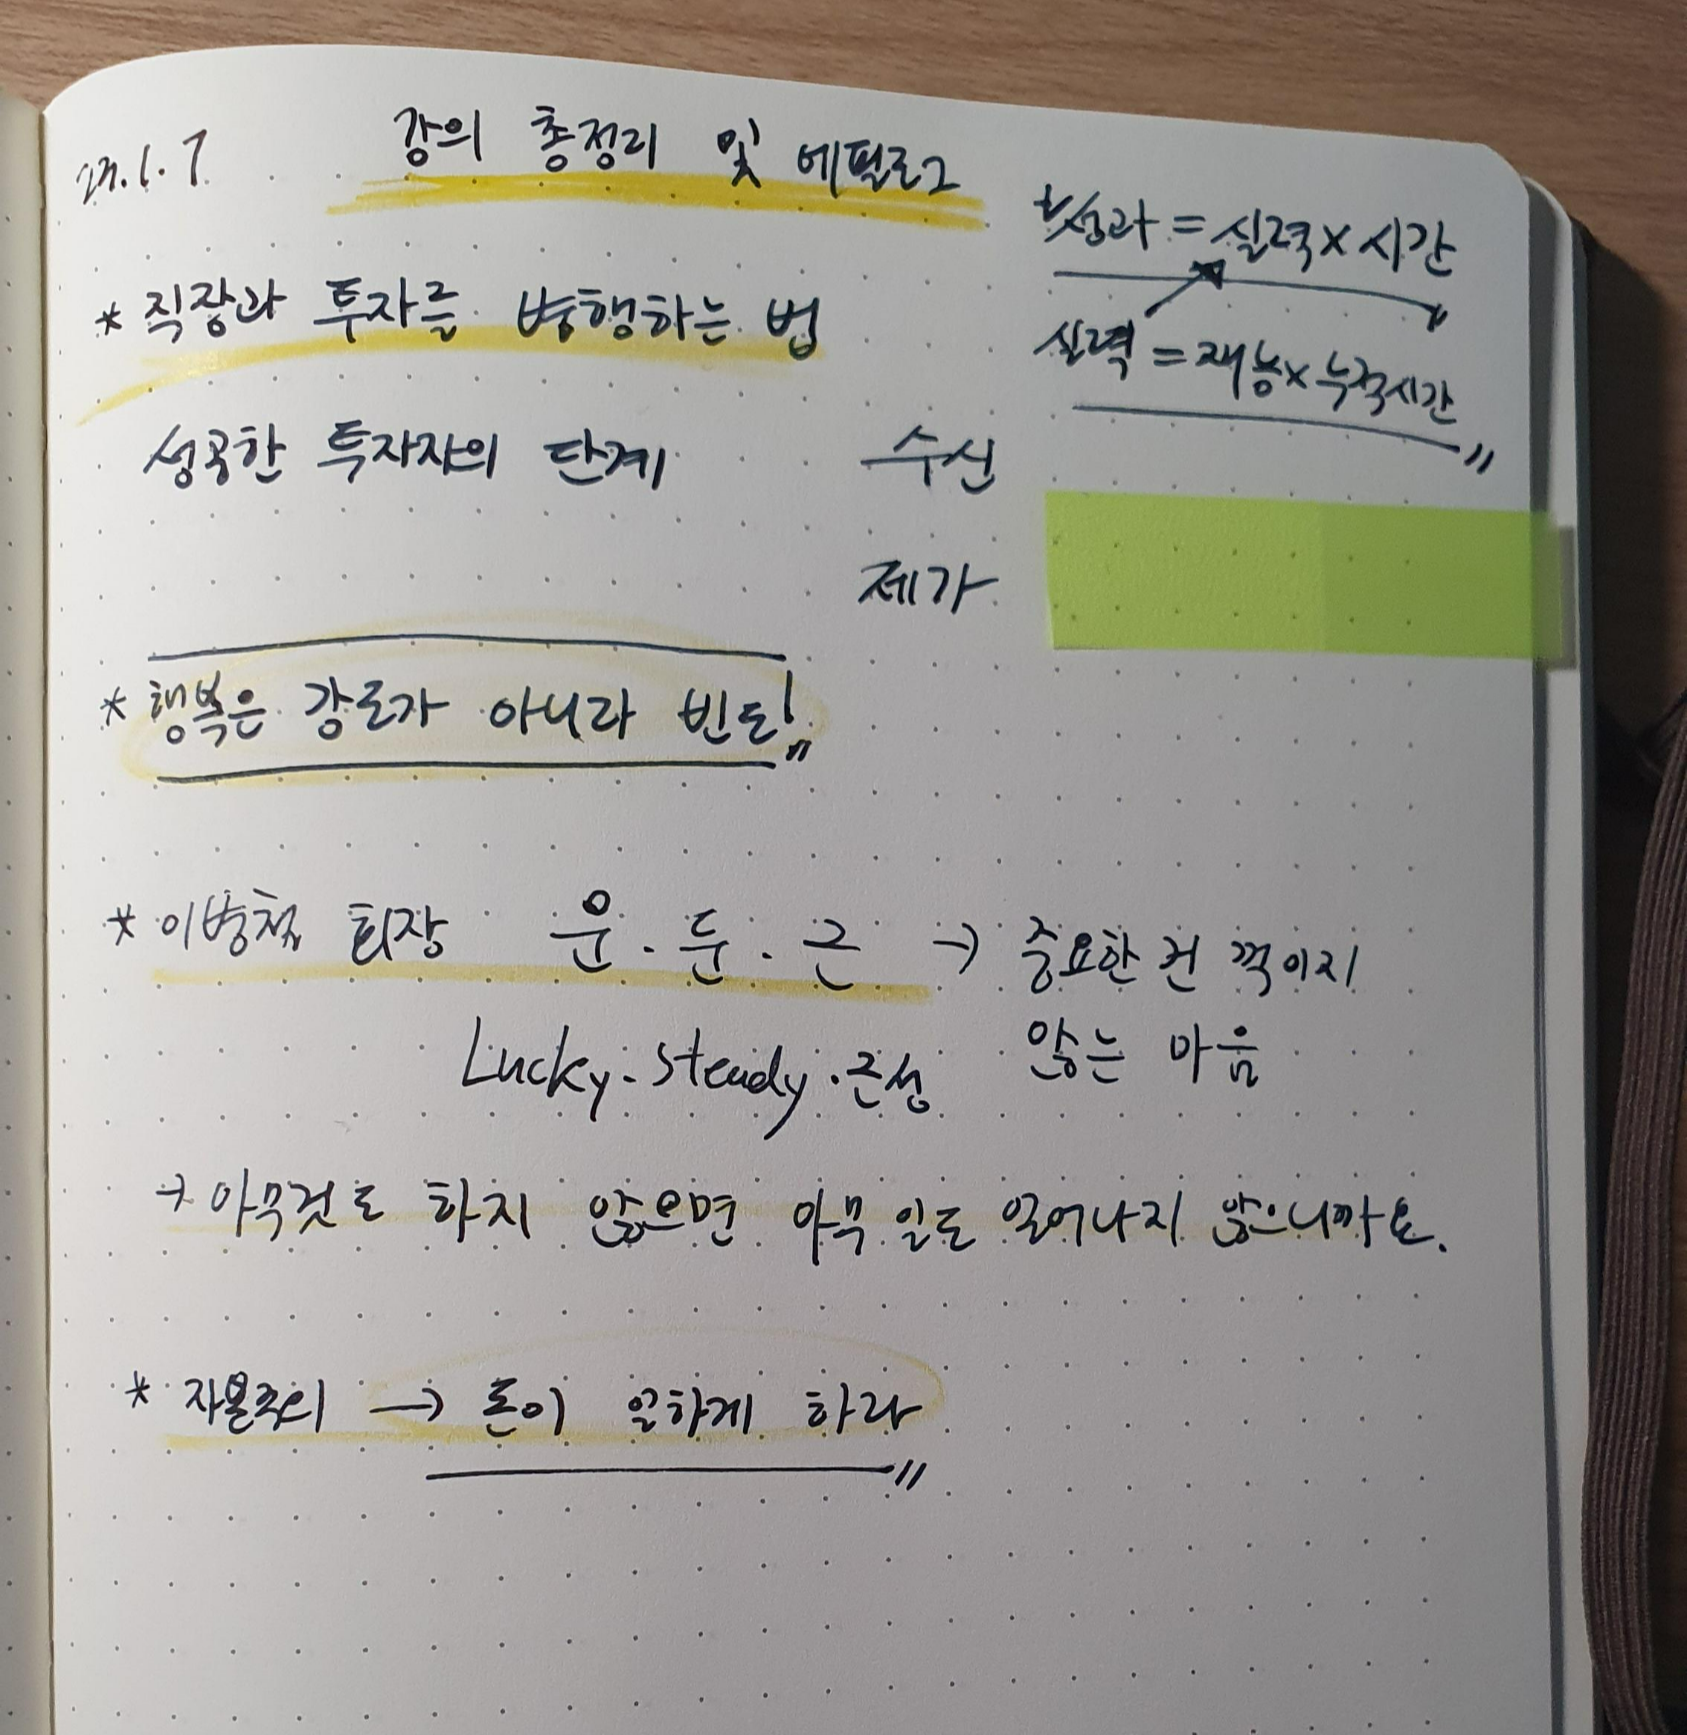 23.1.7
강의 총정리 및 에필로그
* 성과 = 실력 × 시간
실력 = 재능 × 누적시간
* 직장과 투자를 병행하는 법
성공한 투자자의 단계 수신
제가
* 행복은 강도가 아니라 빈도!
* 이병철 회장 운.둔.근 → 중요한 건 꺾이지
Lucky. Steady. 근성 않는 마음
→ 아무것도 하지 않으면 아무 일도 일어나지 않으니까요.
* 자본주의 → 돈이 일하게 하라